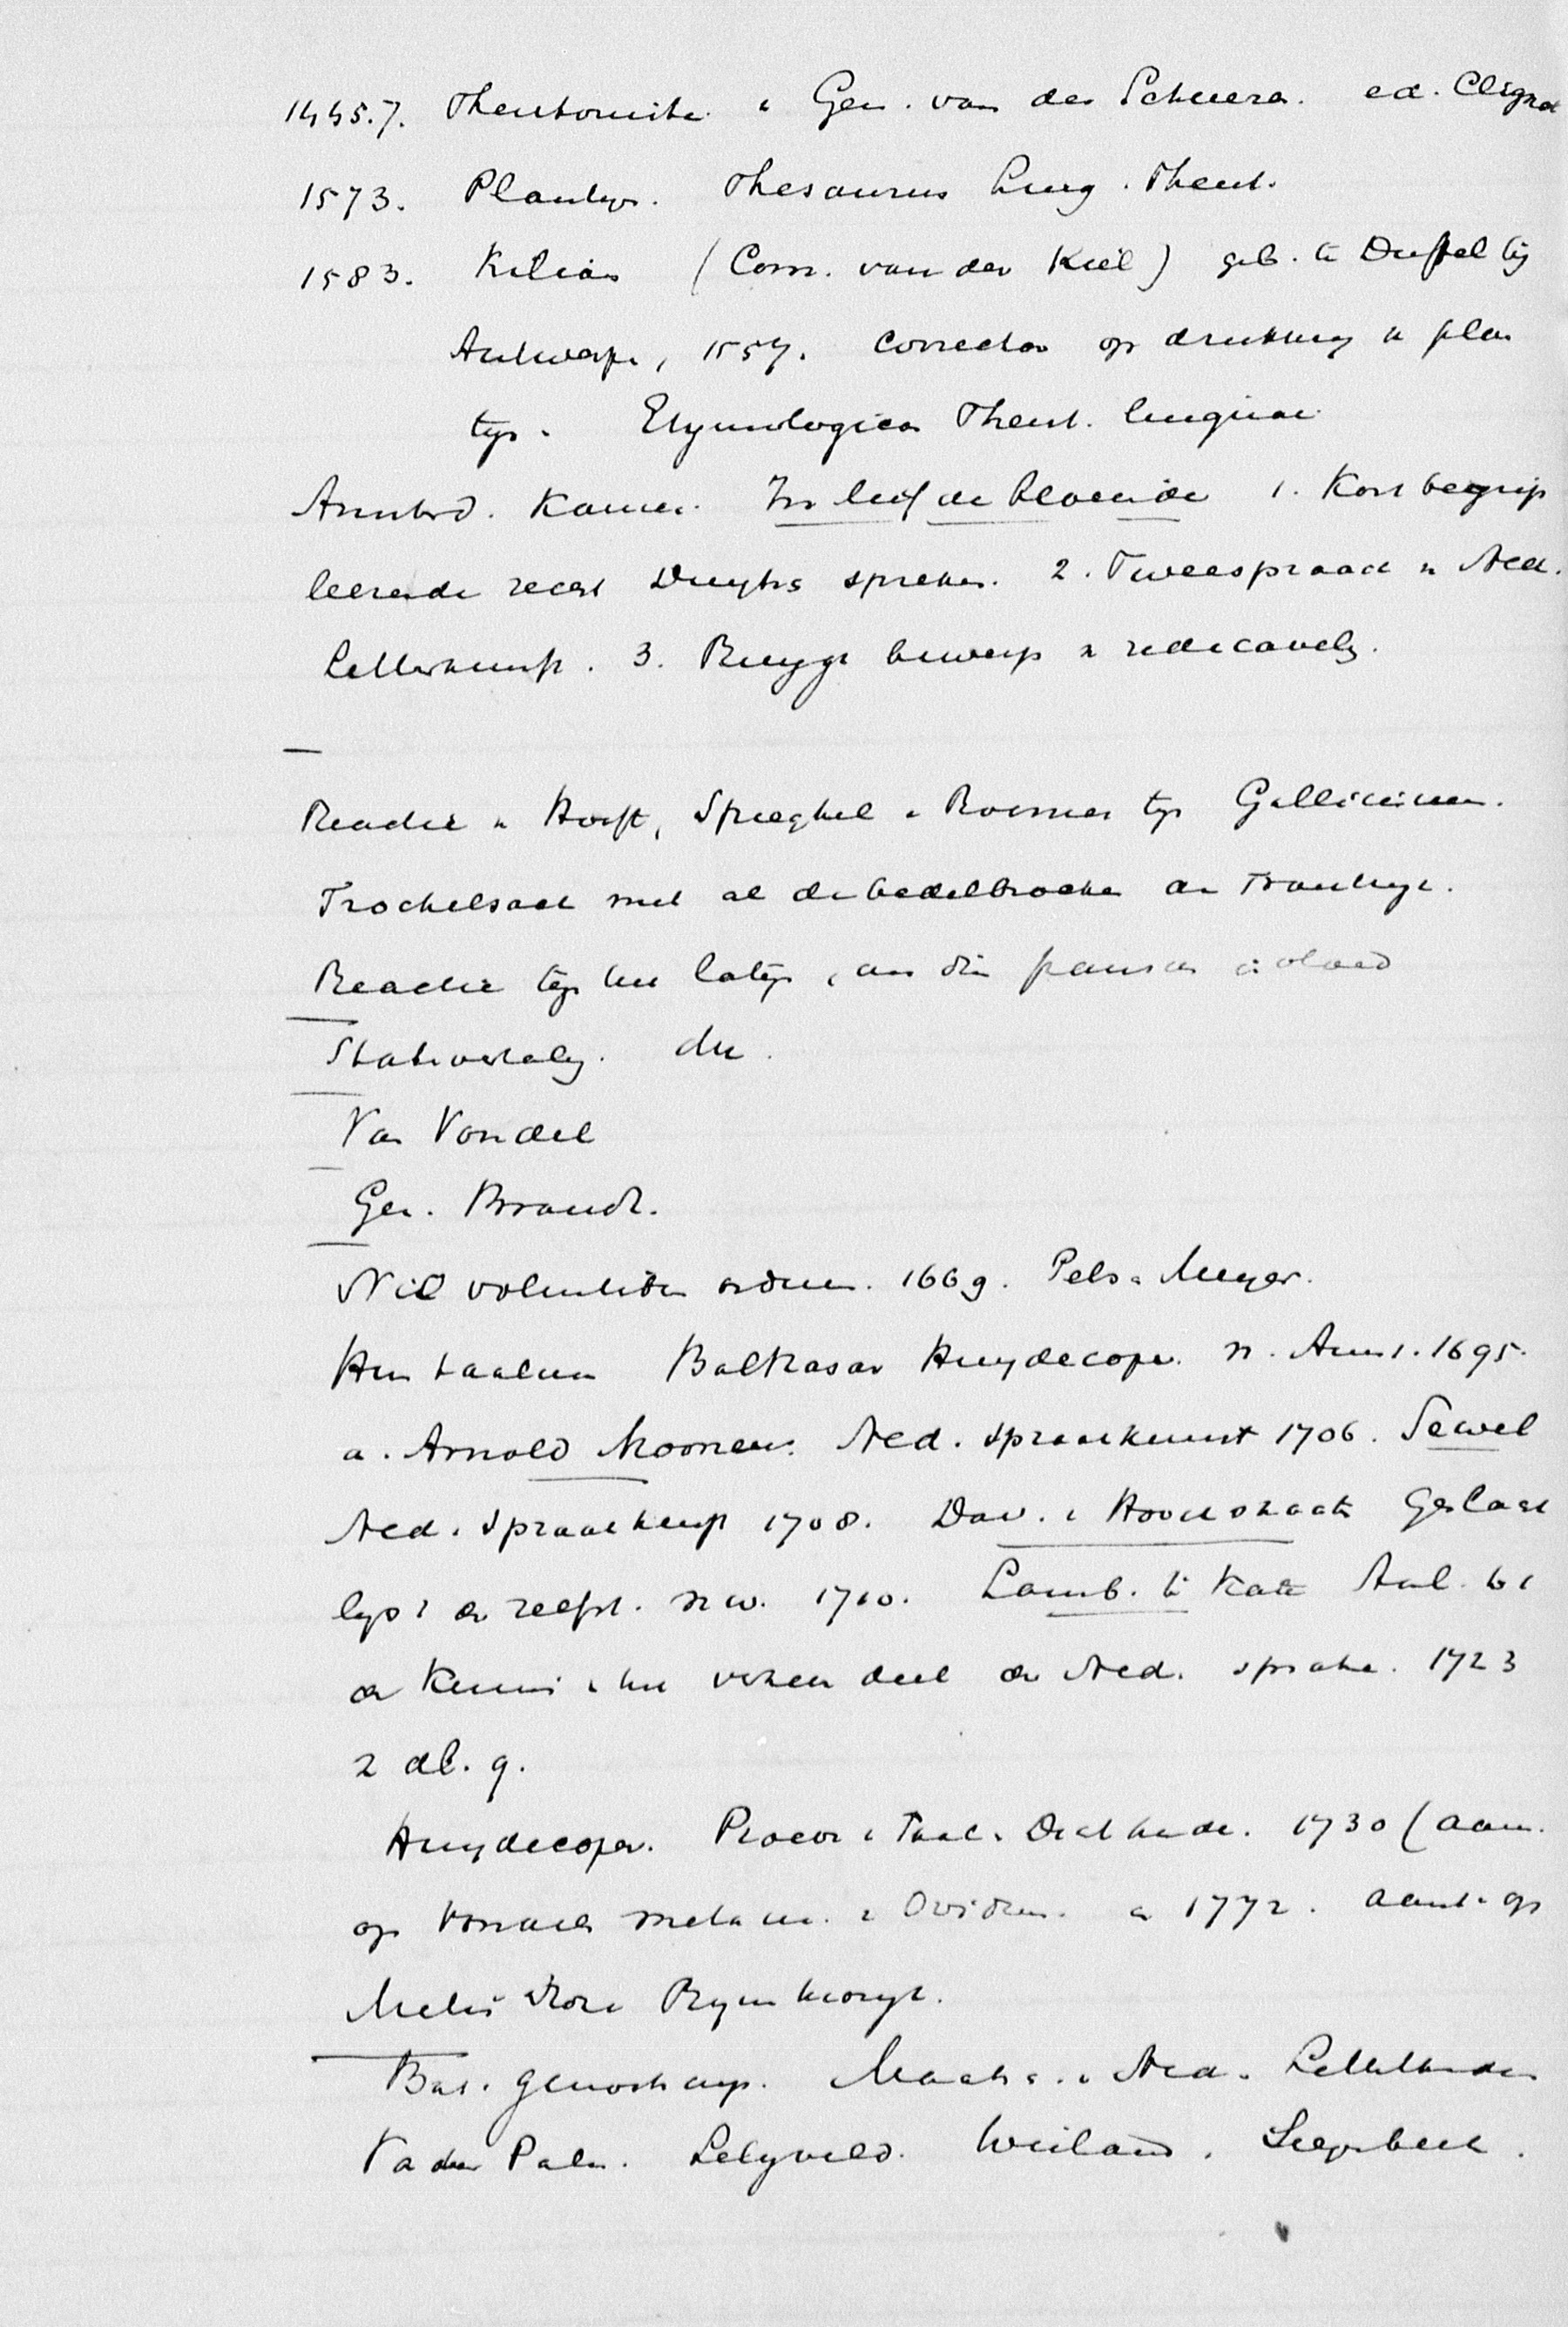 1445.7. Theutonista v Ger. van der Schuere. ed. Clignet
1573. Plantijn. Thesaurus ling. Theut.
1583. Kilian (Corn. van der Kiel) geb. te Duffel bij
Antwerpe, 1557. corrector op drukkerij v plan
tijn. Etymologicon Theut. linguae
Amsterd. Kamer. In liefde bloeiende 1. Kort begrip
leerende recht Duyts spreken. 2. Tweespraack v Ned.
Letterkunst. 3. Ruygh bewerp v redecaveling.
Reactie v Hooft, Spieghel v Roemer tg Gallicismen.
Trochelsack met al de bedelbrocken
Reactie tg het latijn,
Statenvertaling. der
Van Vondel
Ger. Brandt.
Nil volentibus arduum. 1669. Pels v Meyer.
Balthasar Huydecoper. n. Amst. 1695.
a. Arnold Moonen. Ned. spraakkunst 1706. Sewel
Ned. spraakkunst 1708. Dav. v Hoogstraten Geslacht
lijst der zelfst. nw. 1710. Lamb. te Kate Aenl. tot
de Kennis v het verheven deel der Ned. sprake. 1723
2 dl. q.
Huydecoper. Proeve v Taal- v Dichtkunde. 1730 (aanm.
op Vondels metam. v Ovidius. v 1772. aant. op
Melis Stoke Rymkronyk.
Bat. genootschap. Maats. v Ned. Letterkunde
Van der Palm. Lelyveld. Weiland. Siegenbeek.